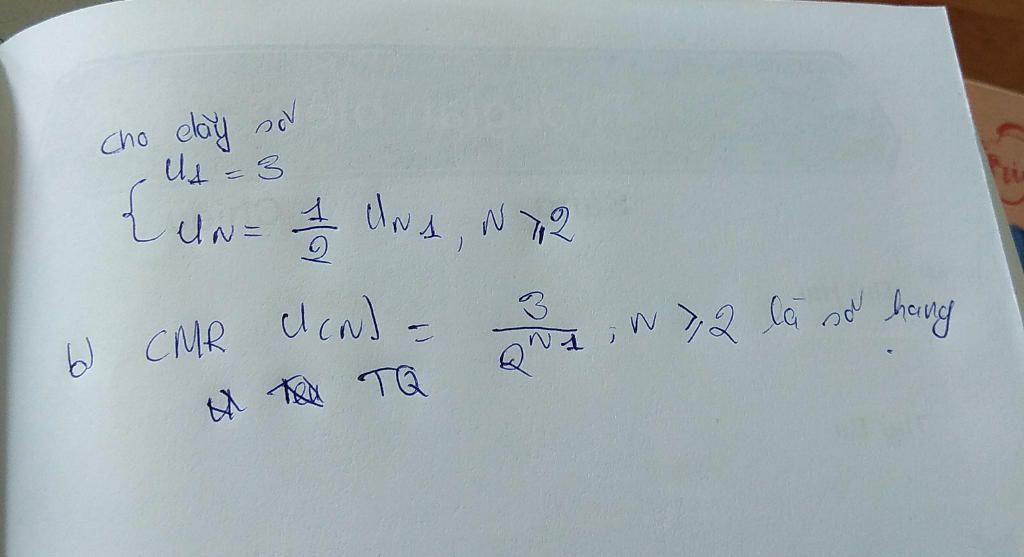 cho dãy số
u1 = 3
uN = 1/2 uN1, N ≥ 2
b) CMR u(N) = 3/2^N1, N ≥ 2 là số hạng
TQ